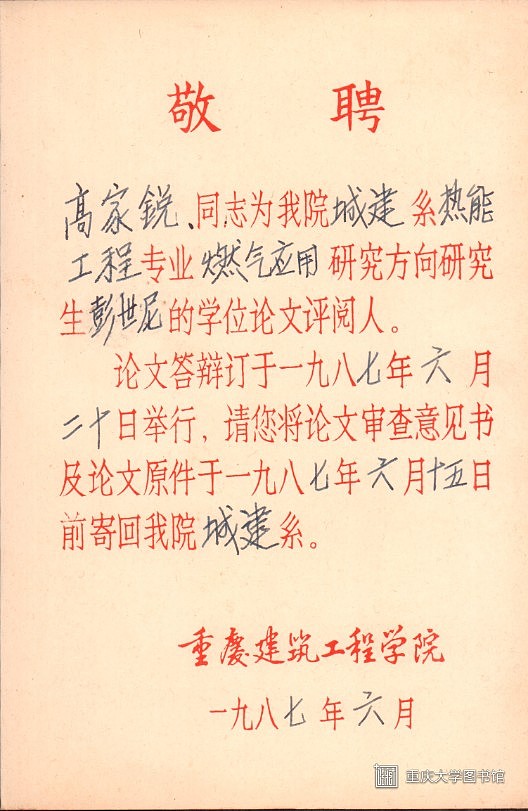 敬 聘
高家锐、同志为我院城建系热能
工程专业燃气应用研究方向研究
生彭世尼的学位论文评阅人。
论文答辩订于一九八七年六月
二十日举行，请您将论文审查意见书
及论文原件于一九八七年六月十五日
前寄回我院城建系。
重庆建筑工程学院
一九八七年六月
重庆大学图书馆